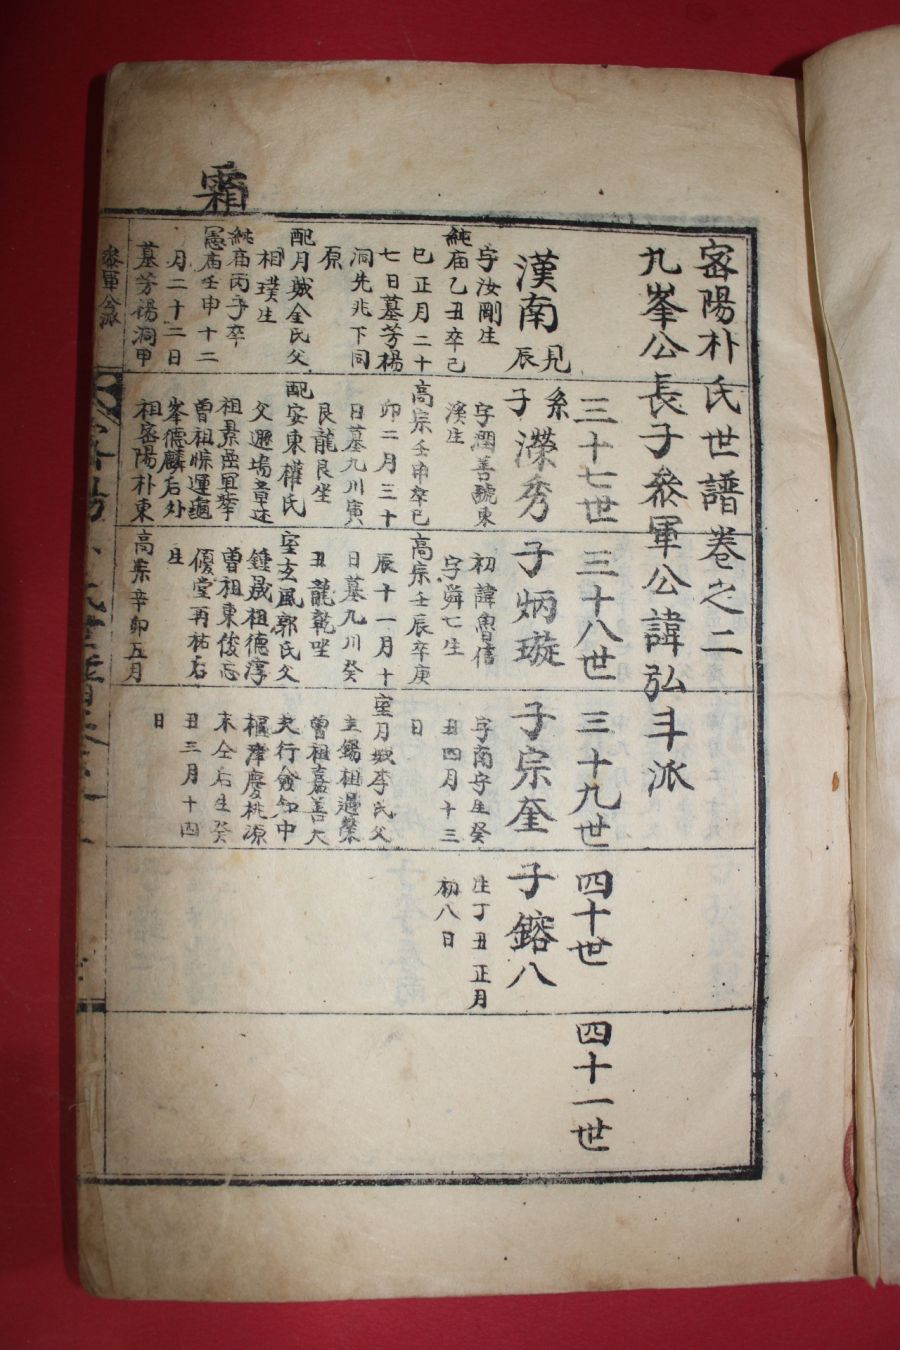 霜
密陽朴氏世譜卷之二
九峯公長子參軍公諱弘斗派
三十七世
三十八世
三十九世
四十世
四十一世
漢南
見
辰
字汝剛生
純庙乙丑卒己
巳正月二十
七日墓芳楊
洞先兆下同
原
配月城金氏父
相璞生
純庙丙子卒
憲庙壬申十二
月二十二日
墓芳楊洞甲
系
子
濚秀
字潤善號東
溪生
高宗壬申卒己
卯二月三十
日墓九川寅
艮龍艮坐
配安東權氏
父 塲 章 述
祖 宜 華
曾祖 運
峯德麟后外
祖密陽朴東
子炳璇
初諱魯信
字舜七生
高宗壬辰卒庚
辰十一月十
日墓九川癸
丑龍乾坐
室玄風郭氏父
鍾晟祖德淳
曾祖東俊忘
優堂再祐后
生
高宗辛卯五月
日
子宗奎
字南守生癸
丑四月十三
日
室月城李氏父
圭錫祖邁榮
曾祖嘉善大
夫行僉知中
樞 慶桃源
末仝后生癸
丑三月十四
日
子鎔八
生丁丑正月
初八日
參軍公派